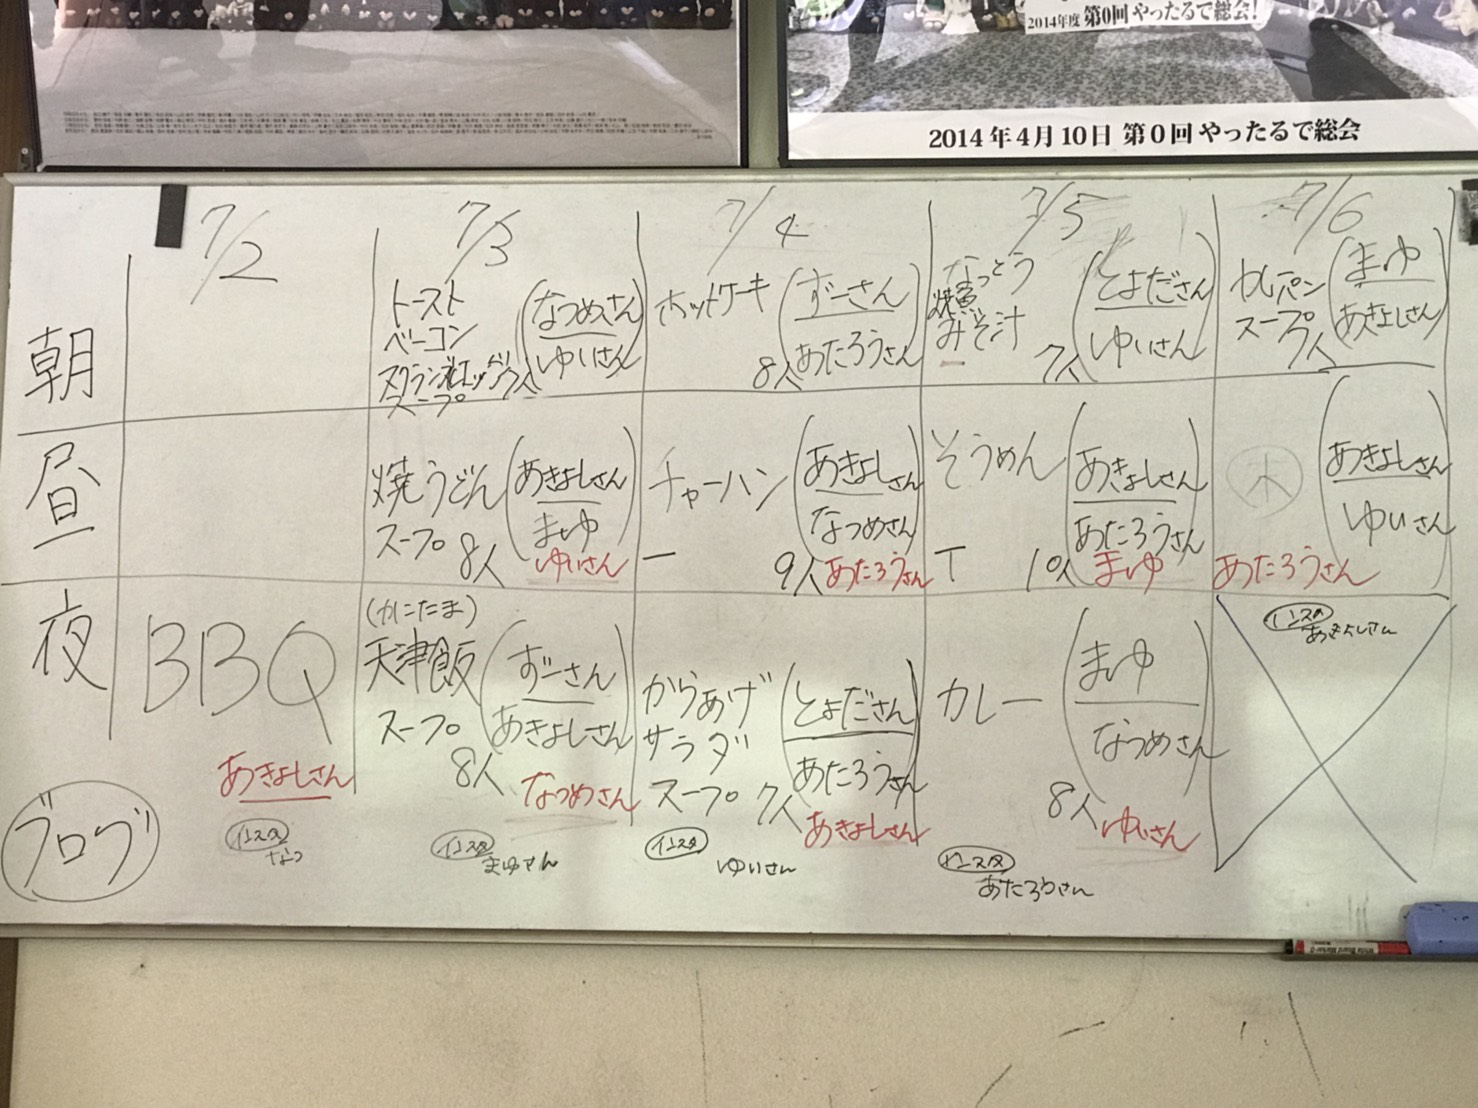 2014年度 第0回 やったるで総会!
2014年4月10日 第0回 やったるで総会
7/2
7/3
7/4
7/5
7/6
朝
トースト
ベーコン
スクランブルエッグ
スープ
7人
なつめさん
ゆいさん
ホットケーキ
8人
ずーさん
あたろうさん
なっとう
みそ汁
7人
とよださん
ゆいさん
スープ
7人
まゆ
あきよしさん
昼
焼うどん
スープ
8人
あきよしさん
まゆ
ゆいさん
チャーハン
9人
あきよしさん
なつめさん
あたろうさん
そうめん
10人
あきよしさん
あたろうさん
まゆ
木
あきよしさん
ゆいさん
あたろうさん
夜
BBQ
あきよしさん
インスタ
なつ
(かにたま)
天津飯
スープ
8人
ずーさん
あきよしさん
なつめさん
インスタ
まゆさん
からあげ
サラダ
スープ
7人
とよださん
あたろうさん
あきよしさん
インスタ
ゆいさん
カレー
8人
まゆ
なつめさん
ゆいさん
インスタ
あたろうさん
インスタ
あきよしさん
ブログ